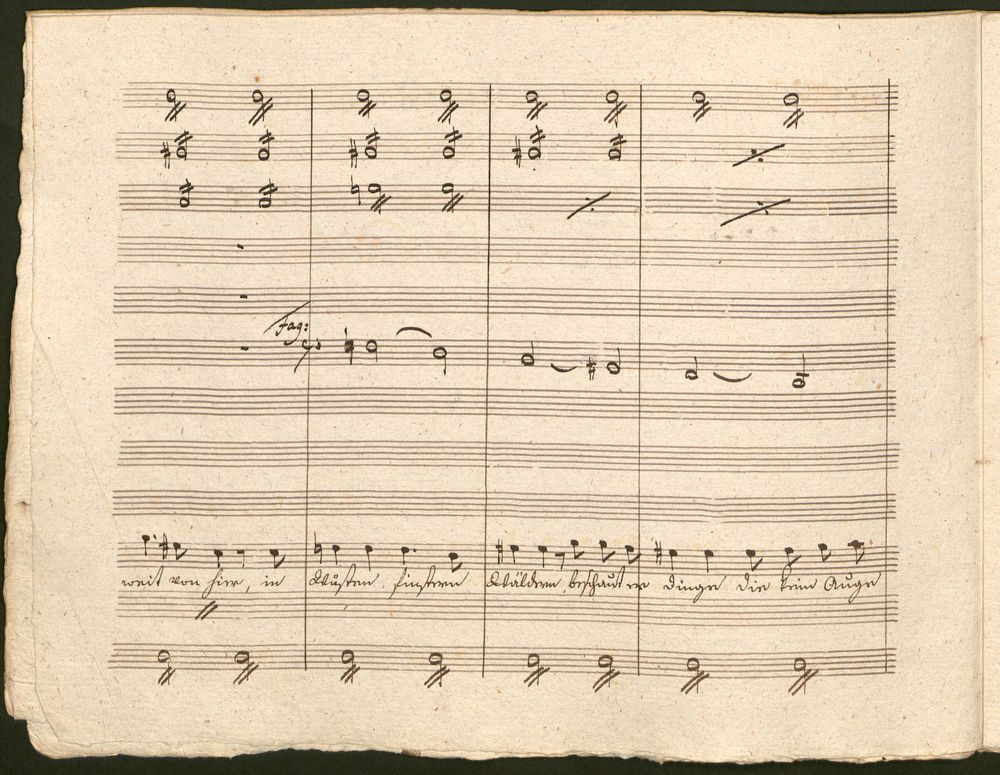 Fag:
weit von hier, in Wüsten, finstern Wäldern, beschaut er dinge die kein Auge